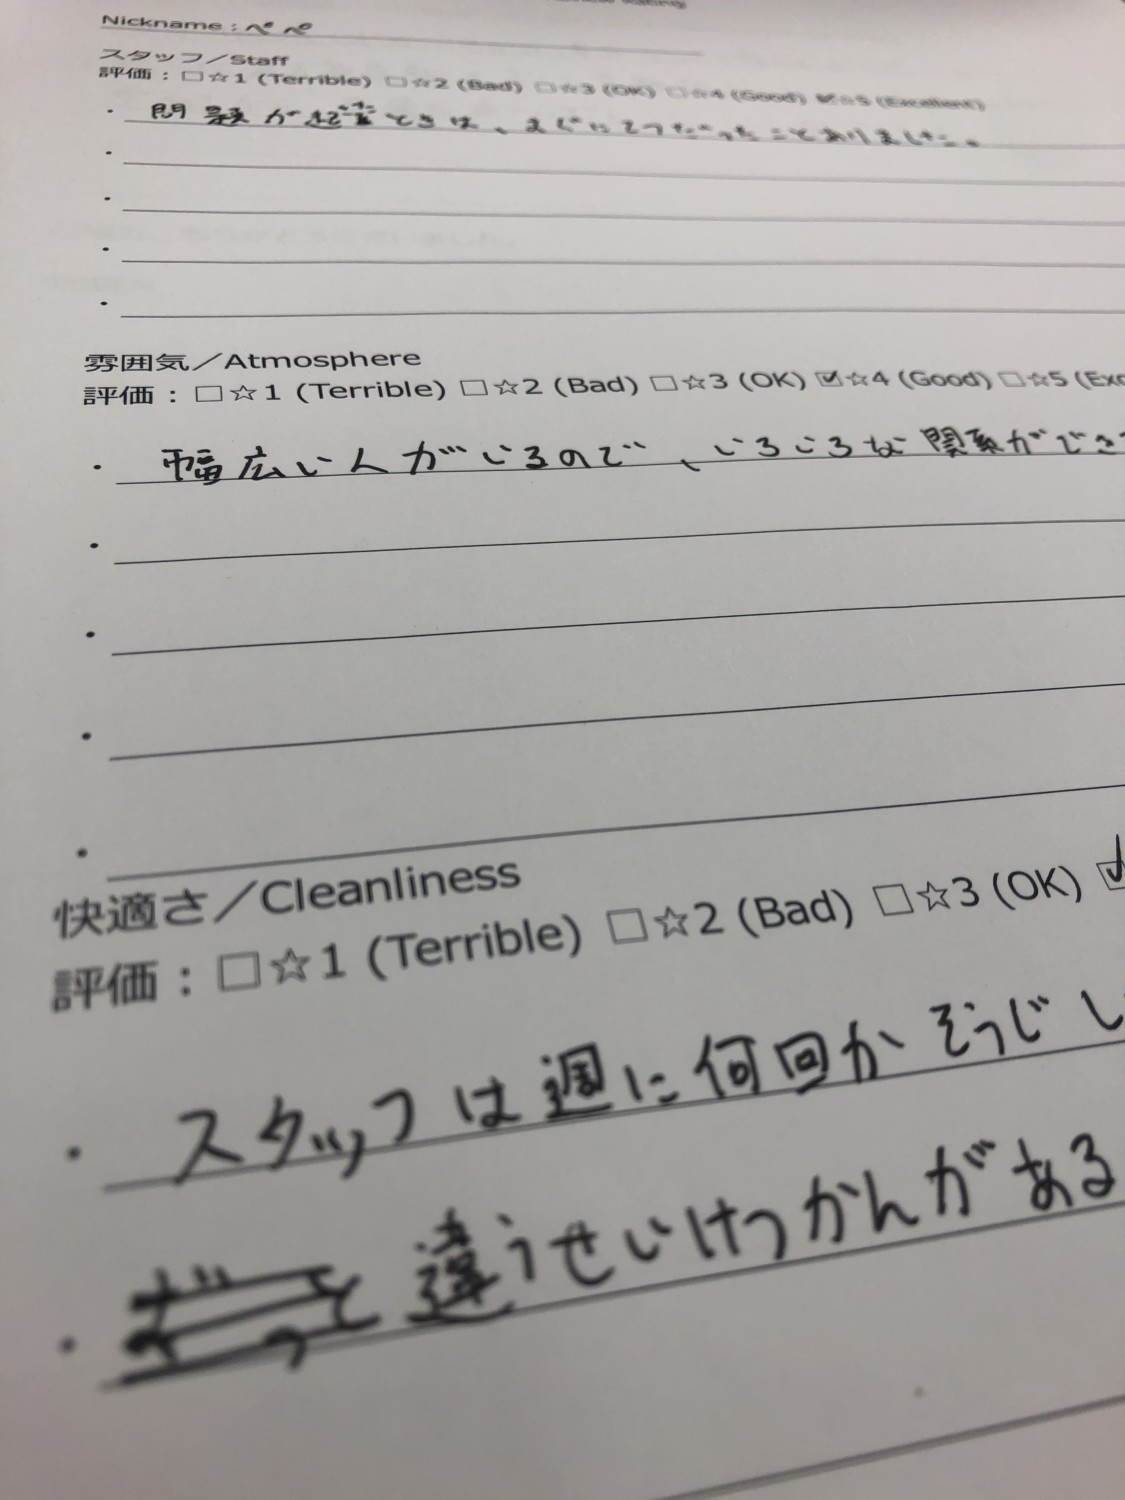 Nickname : ペペ
スタッフ/Staff
評価 : □☆1 (Terrible) □☆2 (Bad) □☆3 (OK) □☆4 (Good) ☑☆5 (Excellent)
・ 問題が起きたときは、すぐに
・
・
・
・
雰囲気/Atmosphere
評価 : □☆1 (Terrible) □☆2 (Bad) □☆3 (OK) ☑☆4 (Good) □☆5 (Exc
・ 幅広い人がいるので、いろいろな関係ができ
・
・
・
・
快適さ/Cleanliness
評価 : □☆1 (Terrible) □☆2 (Bad) □☆3 (OK) ☑
・ スタッフは週に何回かそうじし
・ 違うせいけつかんがある